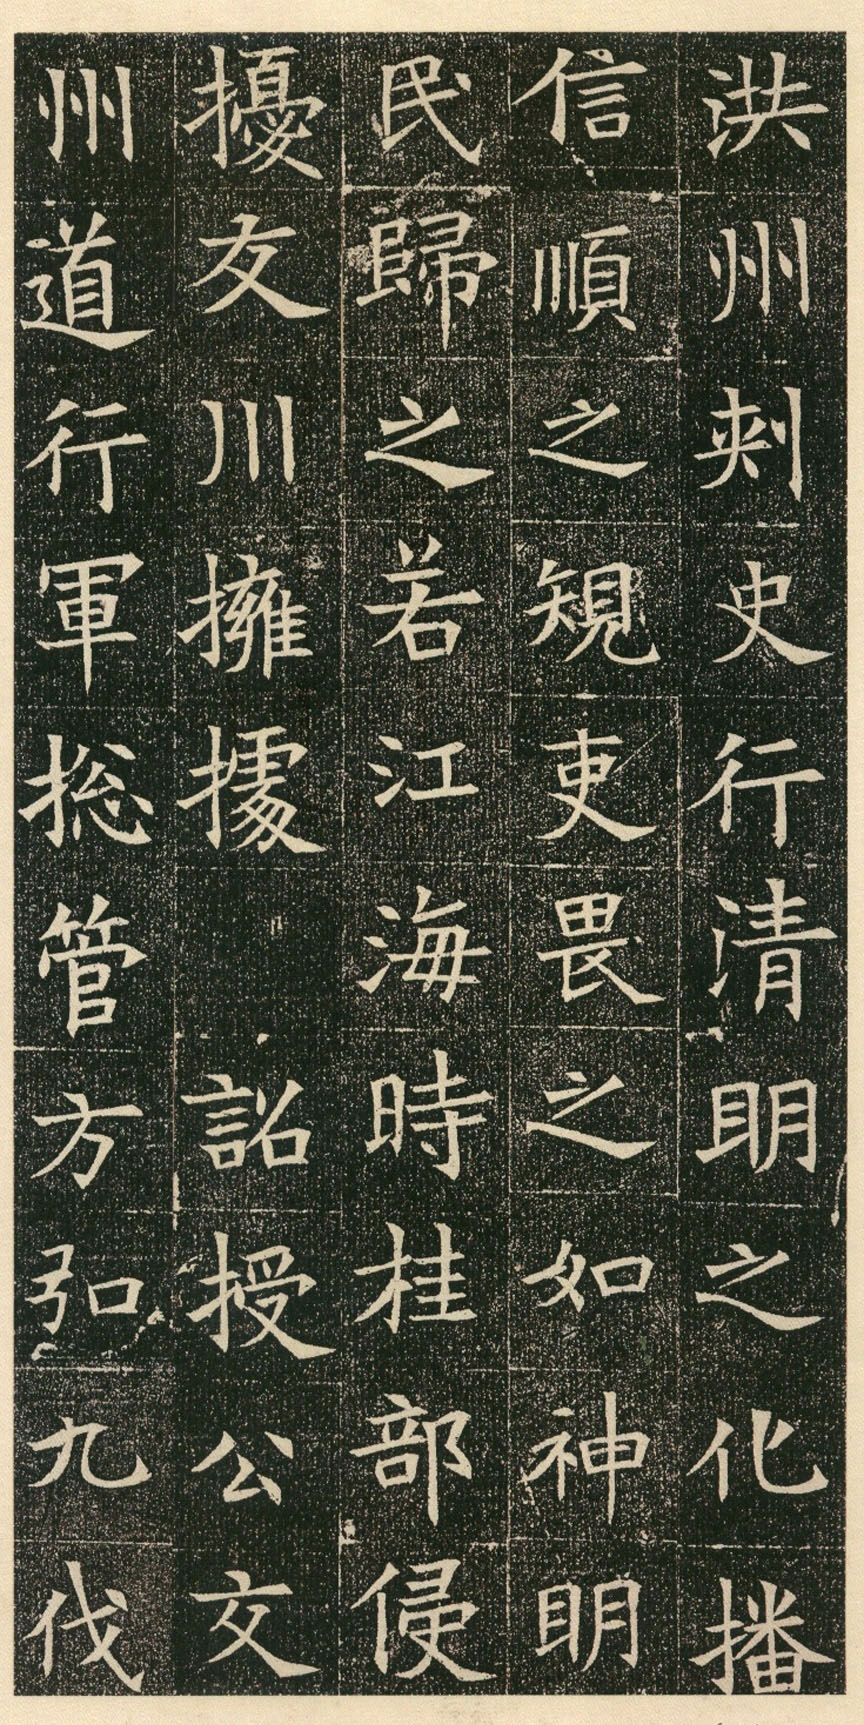 洪州刾史行清眀之化播
信順之䂓吏畏之如神眀
民歸之若江海時桂部侵
擾友川擁據詔授公交
州道行軍捴管方弘九伐